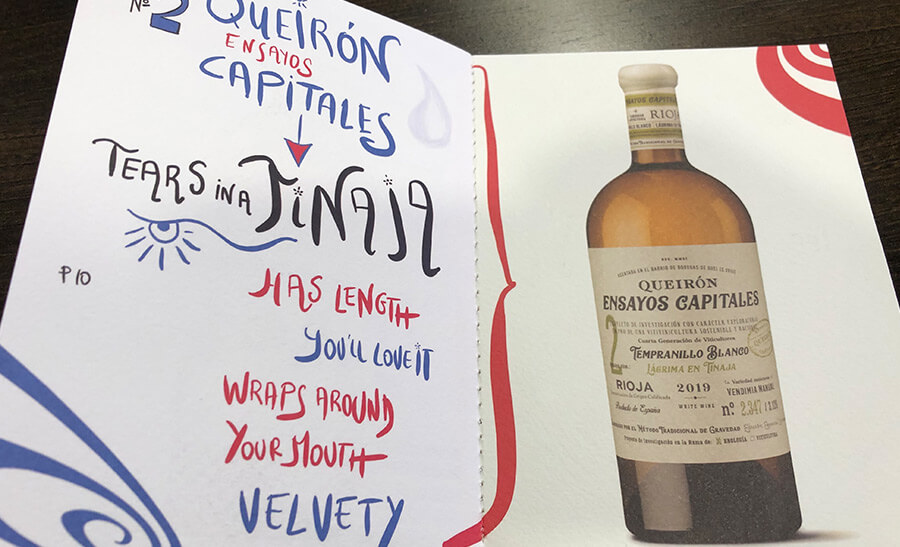 Nº 2 QUEIRÓN
ENSAYOS
CAPITALES
TEARS IN A TINAJA
P 10
HAS LENGTH
YOU'LL LOVE IT
WRAPS AROUND
YOUR MOUTH
VELVETY
ENSAYOS CAPITALES
RIOJA
QUEIRÓN
ENSAYOS CAPITALES
2
Cuarta Generación de Viticultores
TEMPRANILLO BLANCO
LÁGRIMA EN TINAJA
RIOJA
2019
VENDIMIA MANUAL
Producto de España
WHITE WINE
nº. 2.347
MÉTODO TRADICIONAL DE GRAVEDAD